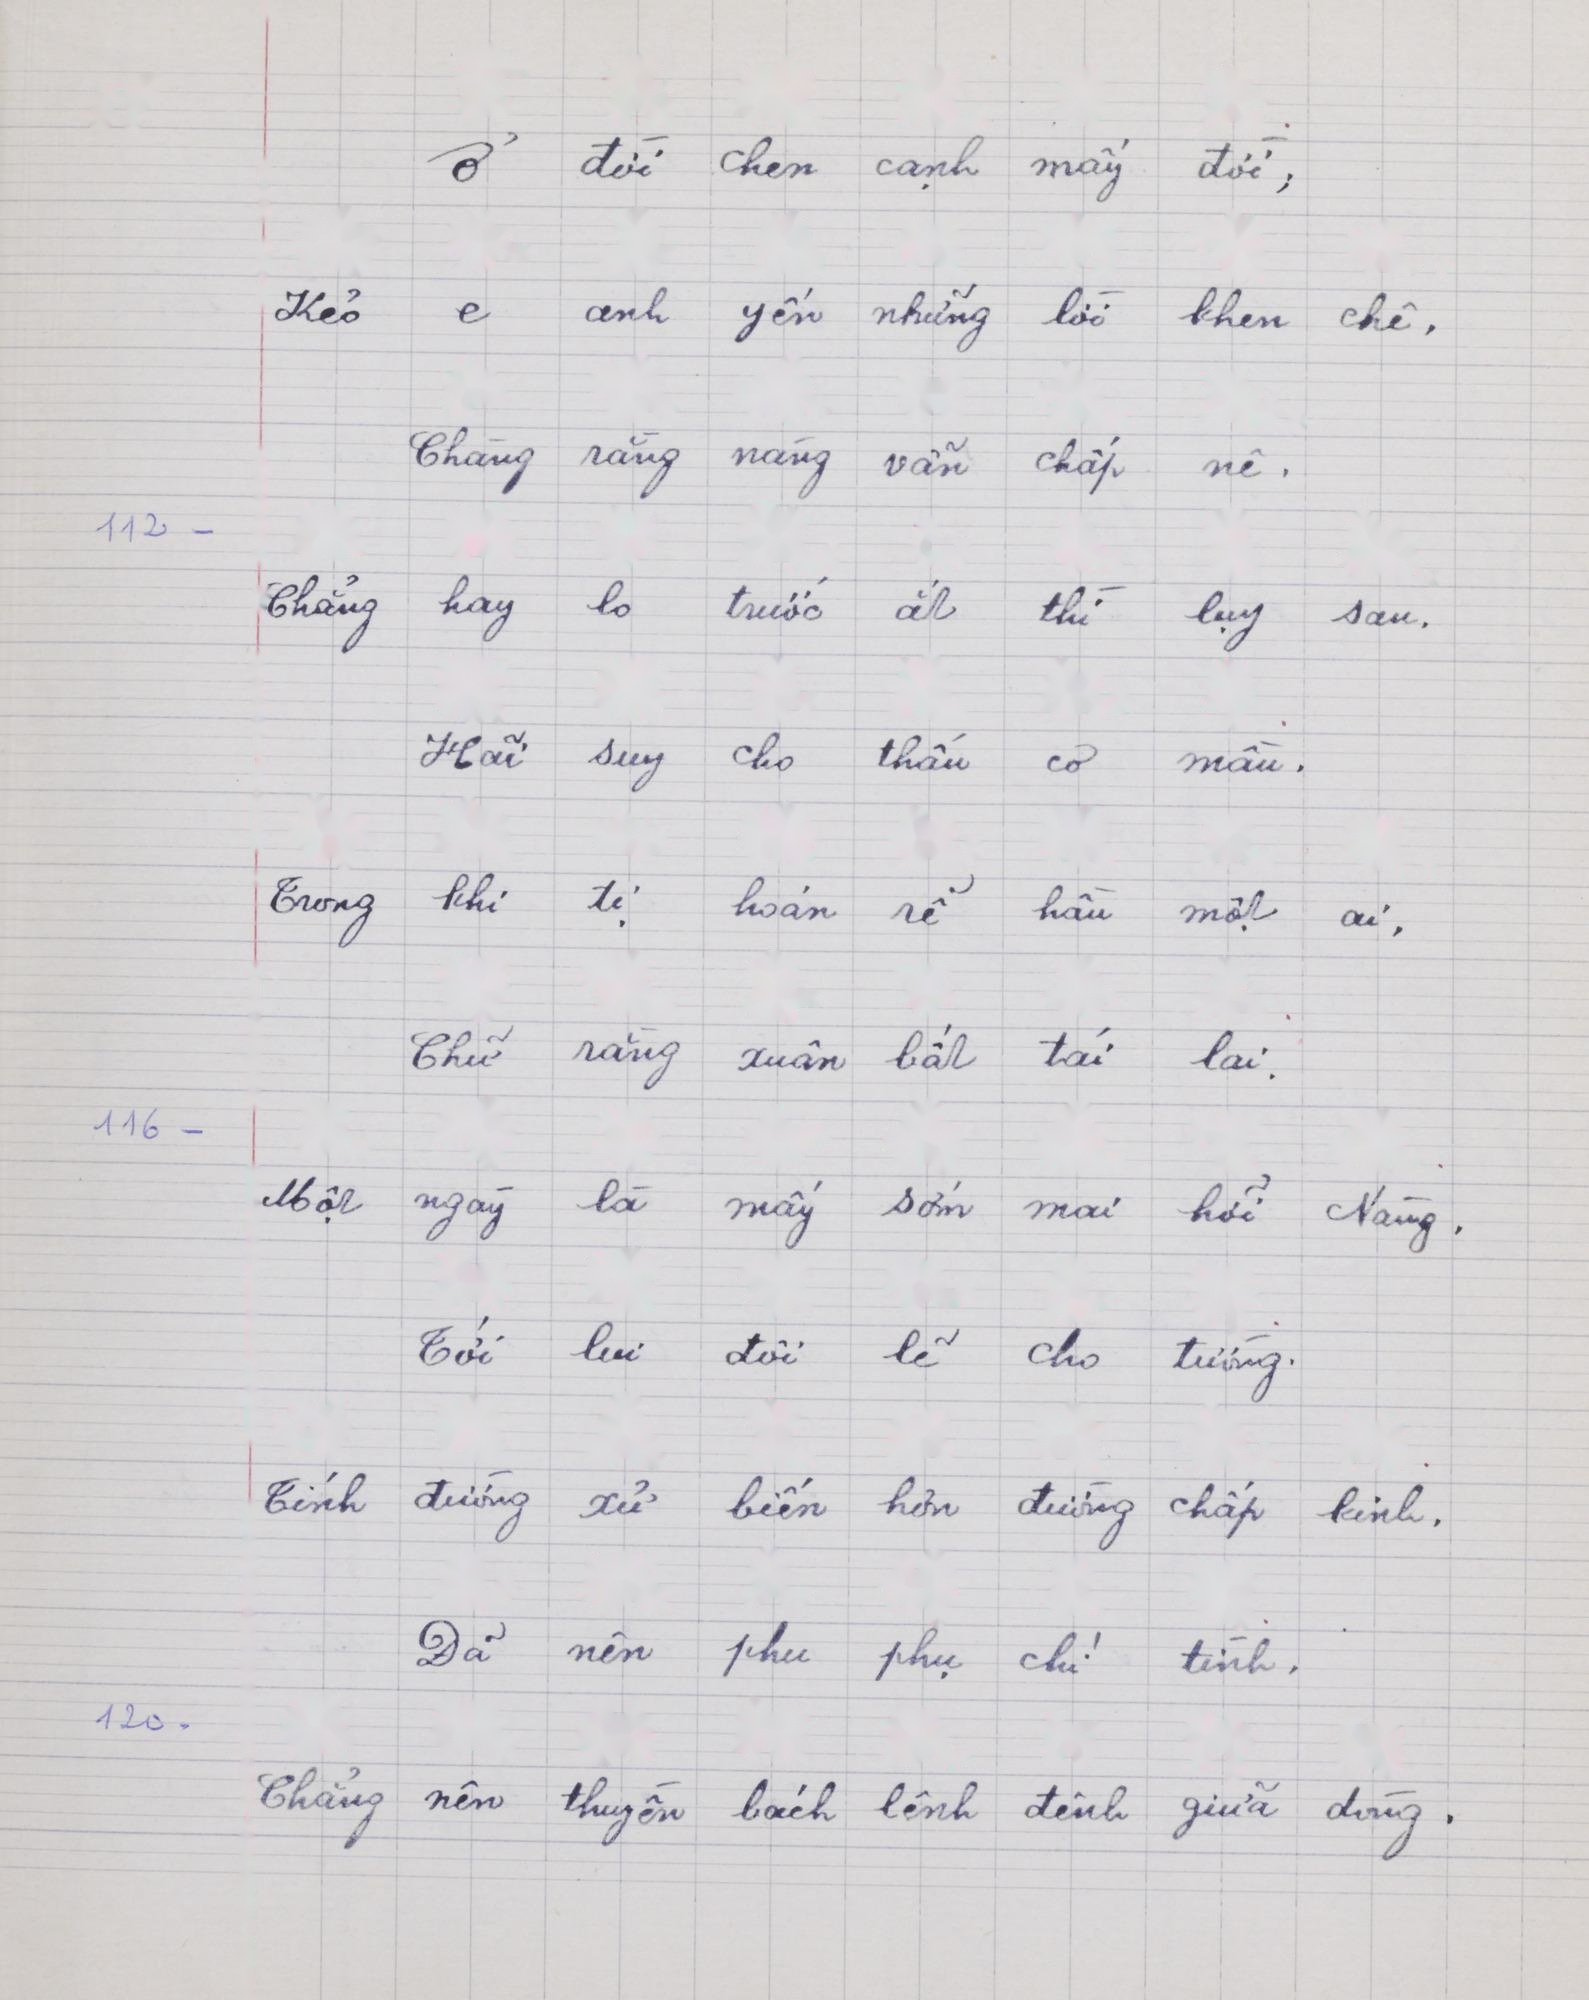 Ở đời chen cạnh mấy đời;
Kẻo e anh yến những lời khen chê.
Chàng rằng nàng vẫn chấp nê.
112 -
Chẳng hay lo trước ắt thì lụy sau.
Hãi suy cho thấu cơ mầu.
Trong khi tị hoán rễ hầu một ai,
Chữ rằng xuân bất tái lai.
116 -
Một ngày là mấy sớm mai hỡi Nàng.
Tới lui đôi lẽ cho tường.
Tính đường xử biến hơn đường chấp kinh.
Đã nên phu phụ chi tình.
120.
Chẳng nên thuyền bách lênh đênh giữa dòng.